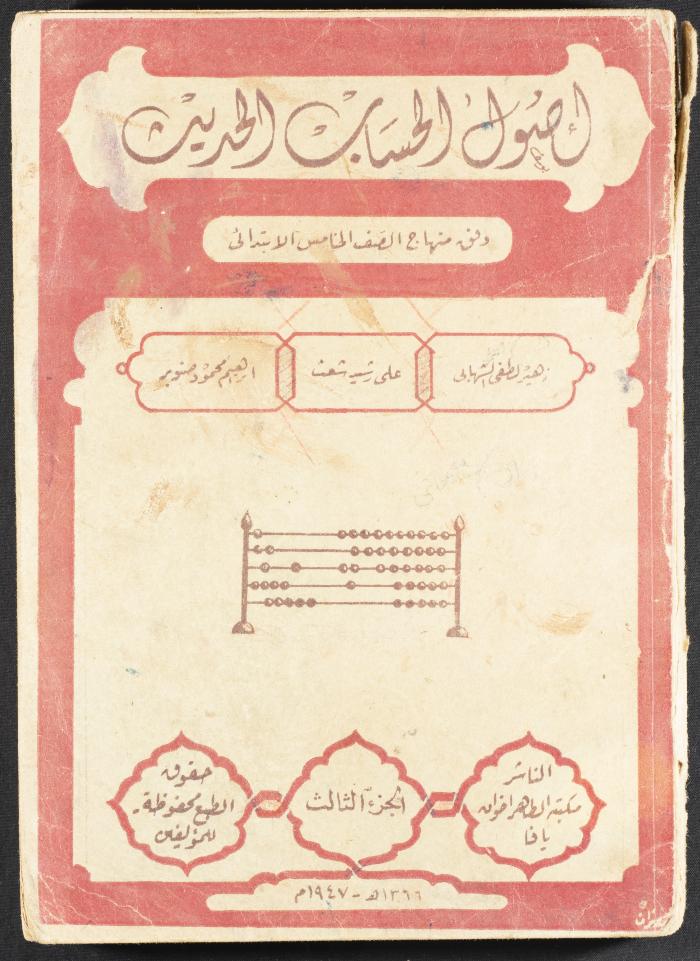 اصول الحساب الحديث
وفق منهاج الصف الخامس الابتدائي
زهير لطفي الشهابي
علي رشيد شعث
ابرهيم محمود صنوبر
الناشر
مكتبة الطاهر اخوان
يافا
الجزء الثالث
حقوق
الطبع محفوظة
للمؤلفين
١٣٦٦هـ - ١٩٤٧م